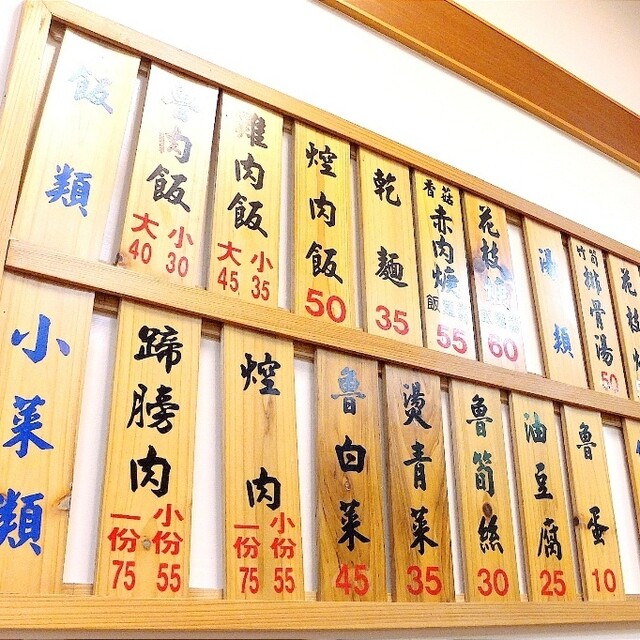 飯類
魯肉飯
大40 小30
雞肉飯
大45 小35
焢肉飯
50
乾麵
35
香菇
赤肉焿
55
花枝焿
60
湯類
竹筍
排骨湯
50
花枝
小菜類
蹄膀肉
一份75 小份55
焢肉
一份75 小份55
魯白菜
45
燙青菜
35
魯筍絲
30
油豆腐
25
魯蛋
10